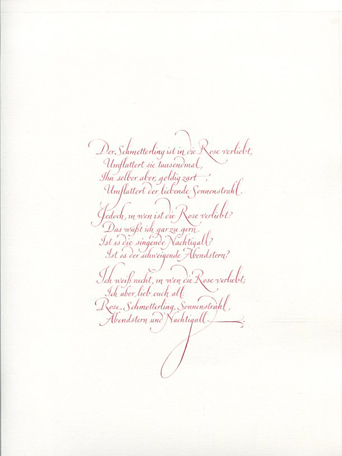 Der Schmetterling ist in die Rose verliebt,
Umflattert sie tausendmal,
Ihn selber aber, goldig zart,
Umflattert der liebende Sonnenstrahl.
Jedoch, in wen ist die Rose verliebt?
Das wüßt ich gar zu gern.
Ist es die singende Nachtigall?
Ist es der schweigende Abendstern?
Ich weiß nicht, in wen die Rose verliebt;
Ich aber lieb euch all:
Rose, Schmetterling, Sonnenstrahl,
Abendstern und Nachtigall.